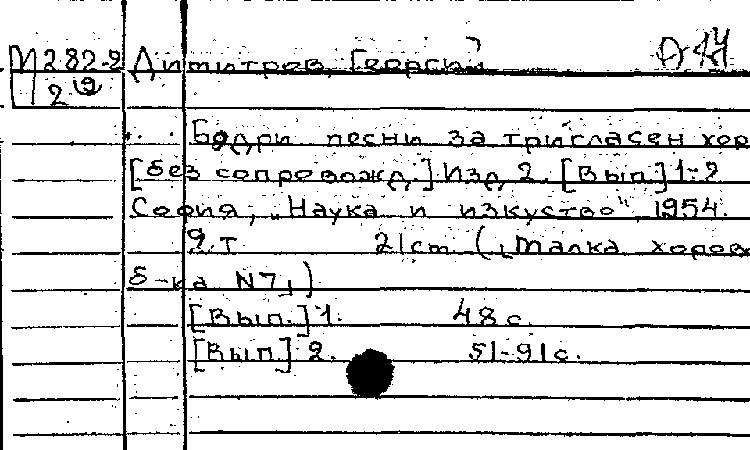 М282-2 Димитров, Георгий
2
Бодри песни за тригласен хор
[без сопровожд.] Изд 2. [Вып.] 1-2
София, „Наука и изкуство", 1954.
2 т 21 cm („Малка хоров
б-ка N 7")
[Вып.] 1. 48 с.
[Вып] 2. 51-91 с.